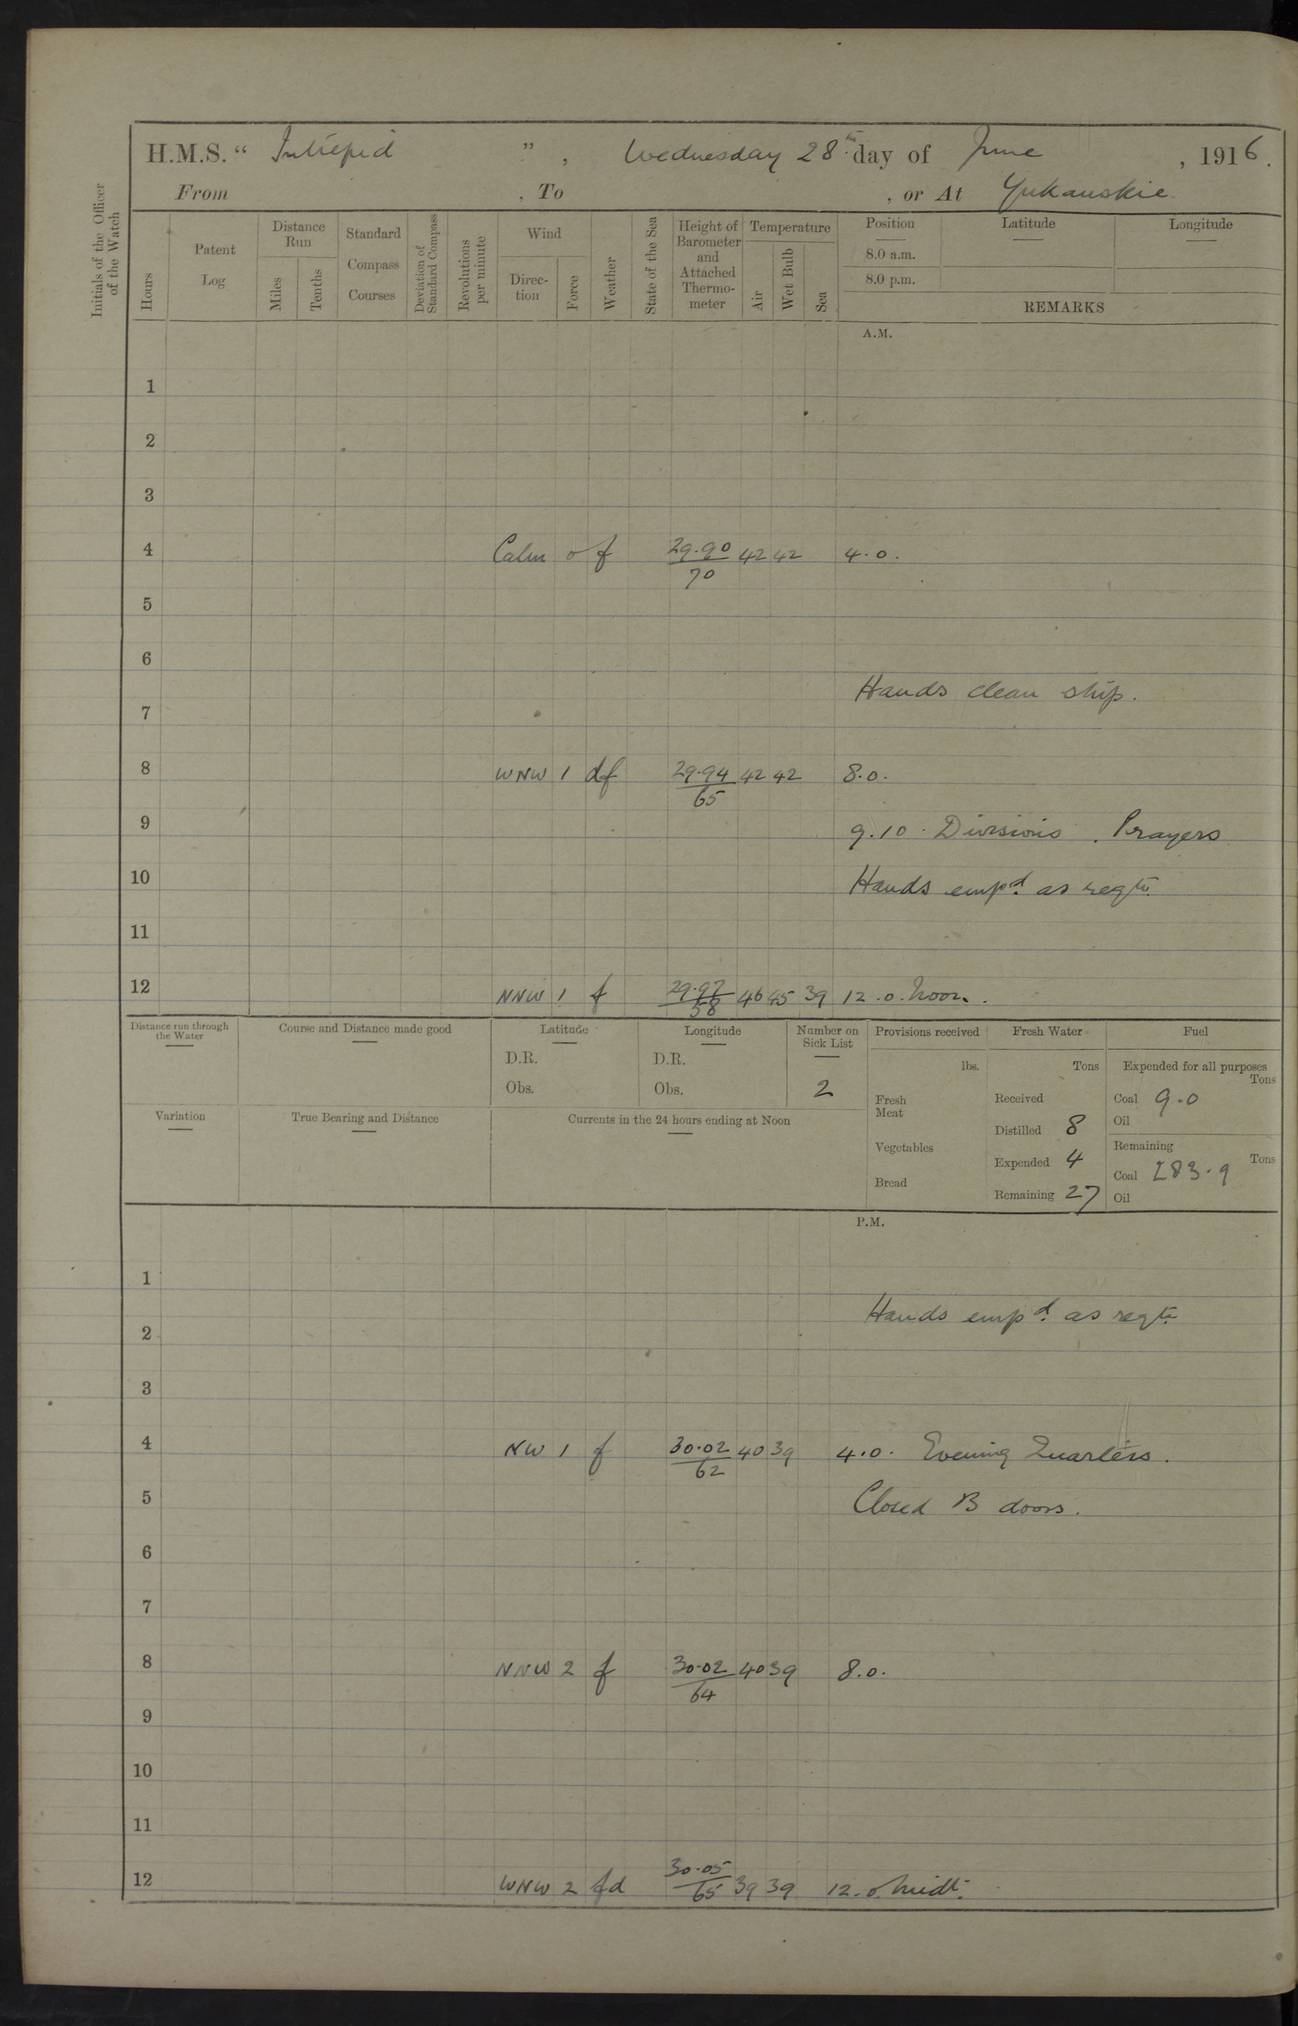 H.M.S. “ Intrepid ” , Wednesday 28th day of June , 1916.
From , To , or At Yukanskie
Initials of the Officer of the Watch
Hours
Patent Log
Distance Run
Miles
Tenths
Standard Compass Courses
Deviation of Standard Compass
Revolutions per minute
Wind
Direc-tion
Force
Weather
State of the Sea
Height of Barometer and Attached Thermo-meter
Temperature
Air
Wet Bulb
Sea
Position
Latitude
Longitude
8.0 a.m.
8.0 p.m.
REMARKS
A.M.
1
2
3
4 Calm 0 f 29.90/70 42 42 4.0.
5
6
Hands clean ship.
7
8 WNW 1 df 29.94/65 42 42 8.0.
9 9.10. Divisions. Prayers
10 Hands empd. as reqte.
11
12 NNW 1 f 29.97/58 46 45 39 12.0. Noon.
Distance run through the Water
Course and Distance made good
Latitude
D.R.
Obs.
Longitude
D.R.
Obs.
Number on Sick List
2
Provisions received
lbs.
Fresh Meat
Vegetables
Bread
Fresh Water
Tons
Received
Distilled 8
Expended 4
Remaining 27
Fuel
Expended for all purposes
Tons
Coal 9.0
Oil
Remaining
Tons
Coal 283.9
Oil
Variation
True Bearing and Distance
Currents in the 24 hours ending at Noon
P.M.
1
Hands empd. as reqte.
2
3
4 NW 1 f 30.02/62 40 39 4.0. Evening Quarters.
5 Closed B doors.
6
7
8 NNW 2 f 30.02/64 40 39 8.0.
9
10
11
12 WNW 2 fd 30.05/65 39 39 12.0. Midt.